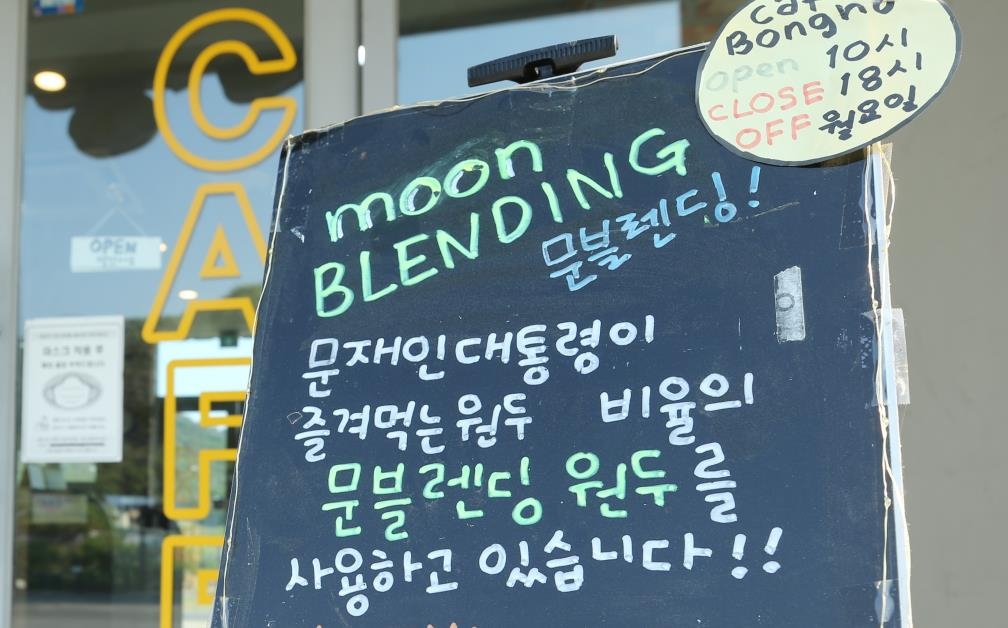 CAFE
OPEN
마스크 착용 후
Cafe
Bongha
open 10시
CLOSE 18시
OFF 월요일
moon
BLENDING
문블렌딩!
문재인대통령이
즐겨먹는원두 비율의
문블렌딩 원두를
사용하고 있습니다!!